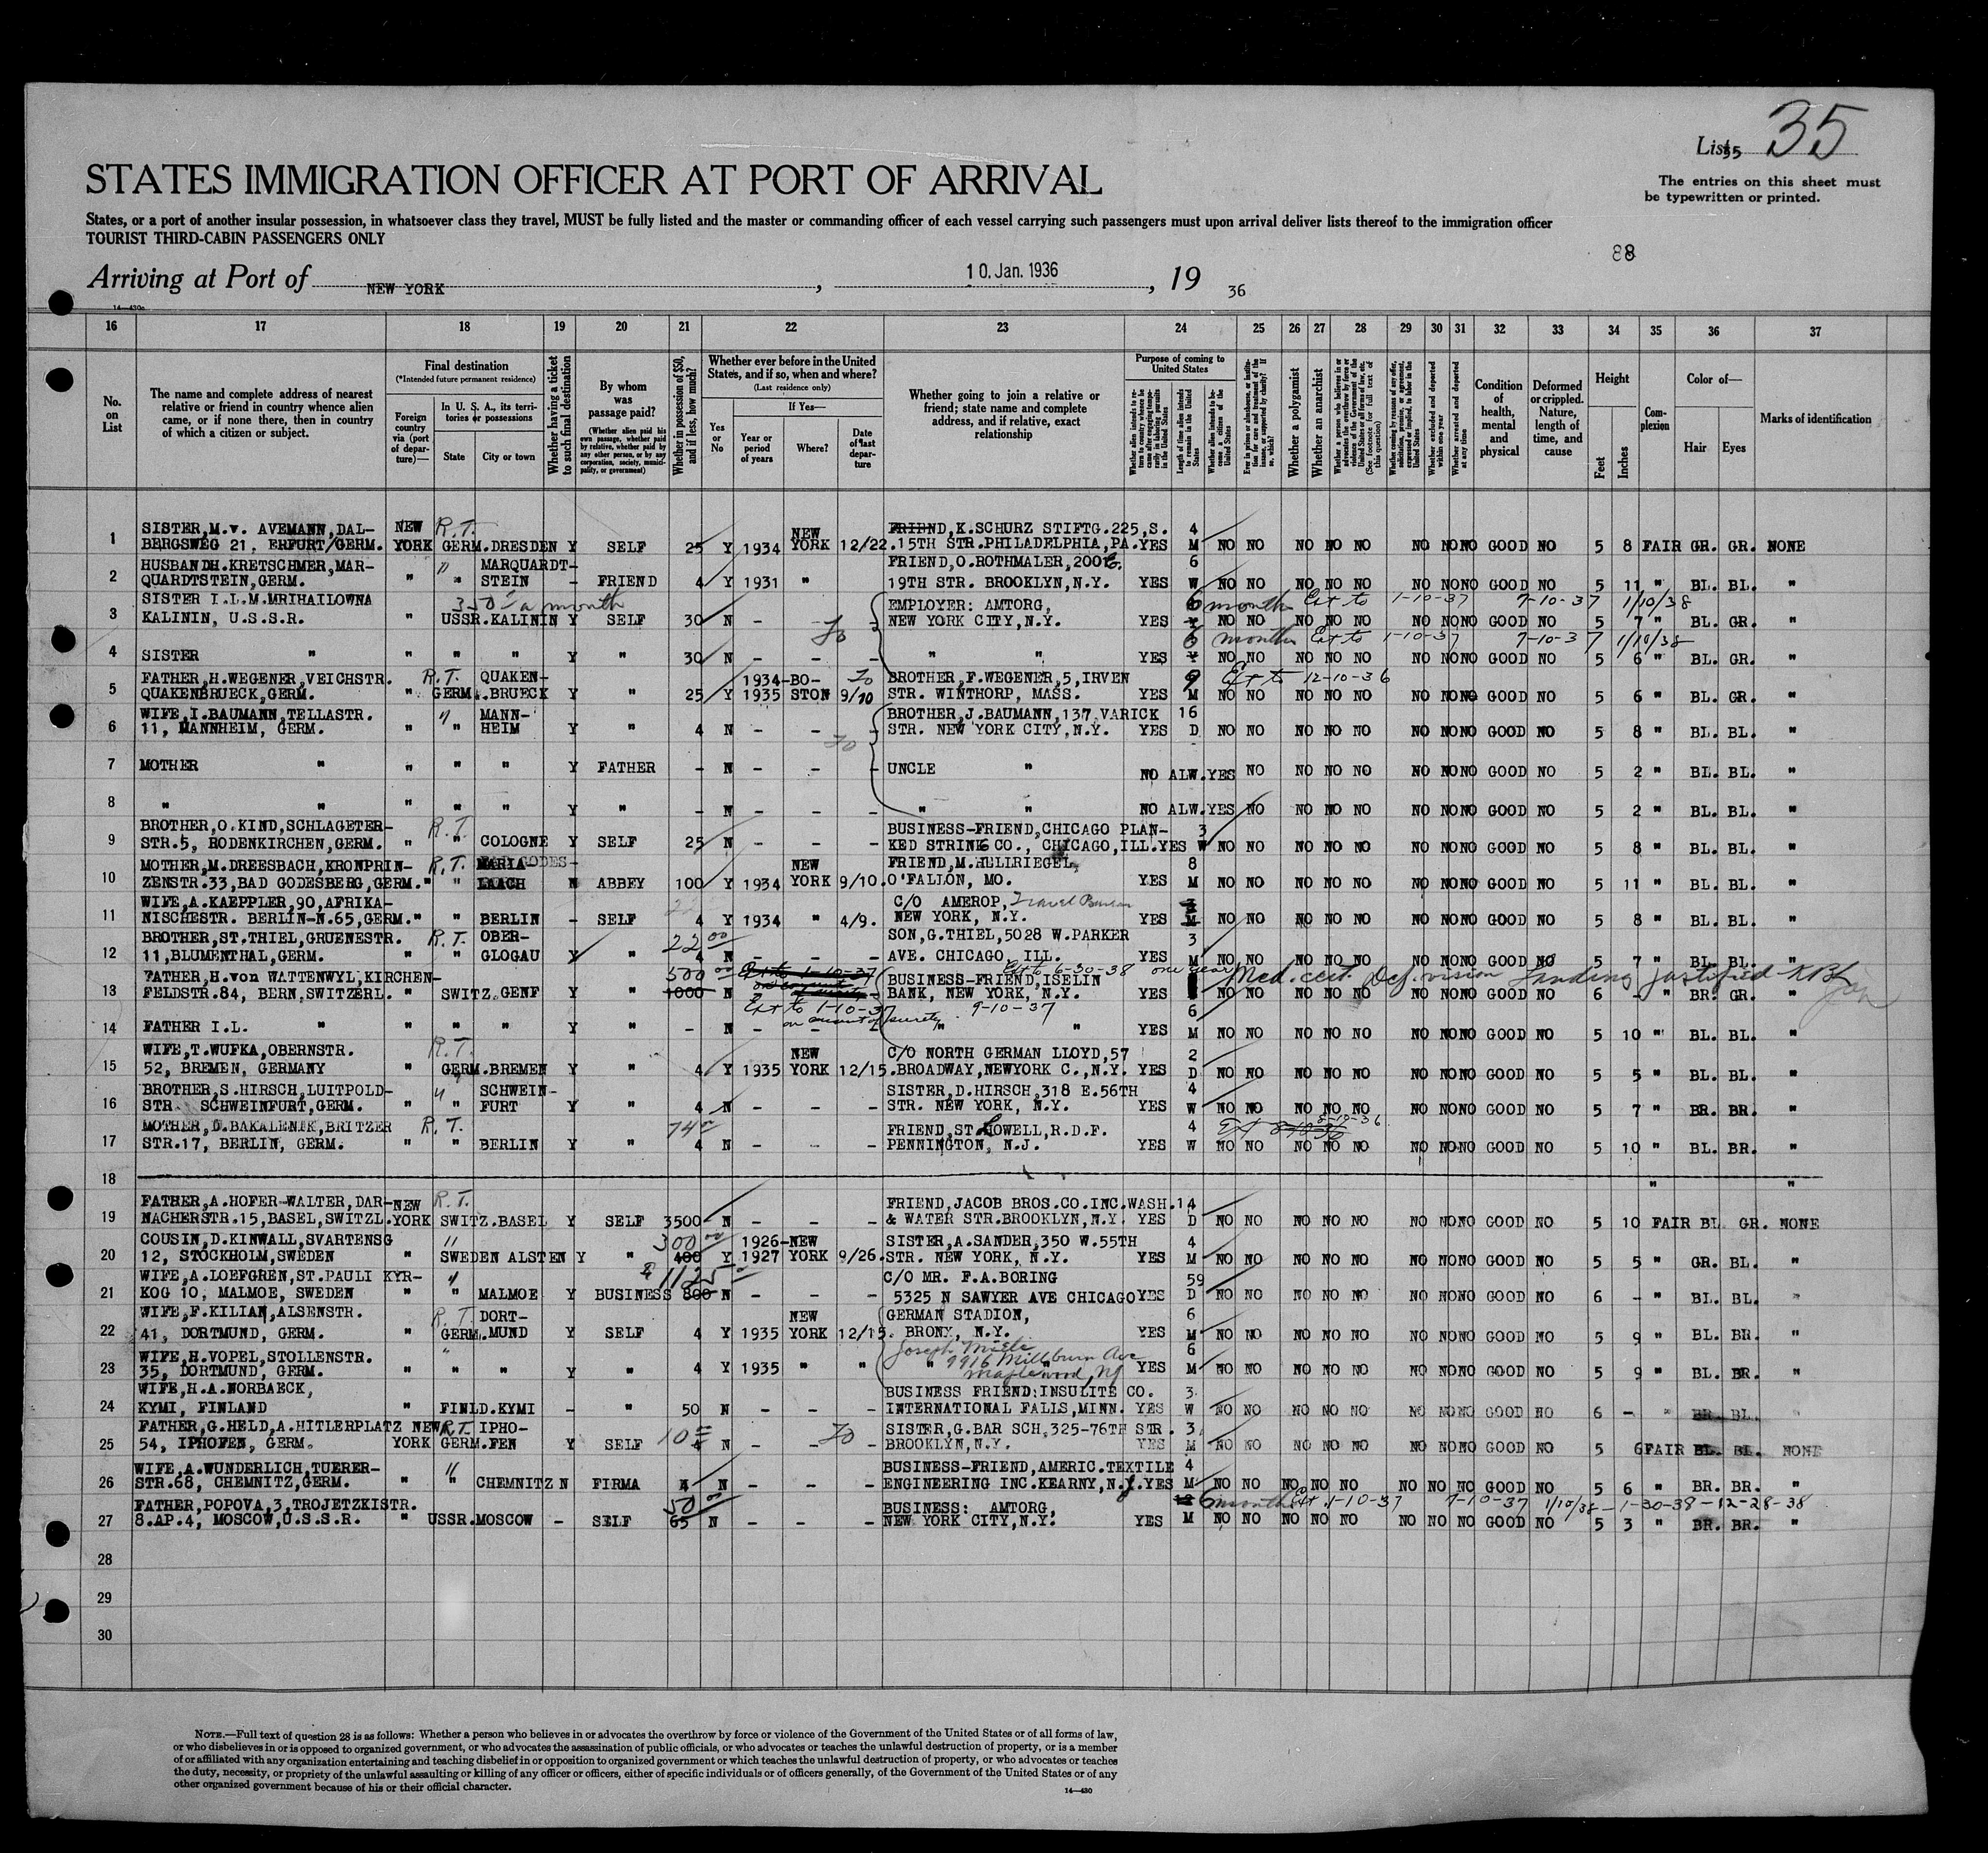 List 35 35
The entries on this sheet must
be typewritten or printed.
STATES IMMIGRATION OFFICER AT PORT OF ARRIVAL
States, or a port of another insular possession, in whatsoever class they travel, MUST be fully listed and the master or commanding officer of each vessel carrying such passengers must upon arrival deliver lists thereof to the immigration officer
TOURIST THIRD-CABIN PASSENGERS ONLY
88
Arriving at Port of NEW YORK, 10. Jan. 1936, 19 36
14—430c
16 17 18 19 20 21 22 23 24 25 26 27 28 29 30 31 32 33 34 35 36 37
No. on List
The name and complete address of nearest
relative or friend in country whence alien
came, or if none there, then in country
of which a citizen or subject.
Final destination
(*Intended future permanent residence)
Foreign country via (port of departure)—
In U. S. A., its territories or possessions
State
City or town
Whether having a ticket to such final destination
By whom was passage paid?
(Whether alien paid his own passage, whether paid by relative, whether paid by any other person, or by any corporation, society, municipality, or government)
Whether in possession of $50, and if less, how much?
Whether ever before in the United States, and if so, when and where?
(Last residence only)
Yes or No
If Yes—
Year or period of years
Where?
Date of last departure
Whether going to join a relative or
friend; state name and complete
address, and if relative, exact
relationship
Purpose of coming to United States
Length of time alien intends to remain in the United States
Whether alien intends to become a citizen of the United States
Whether a polygamist
Whether an anarchist
Whether excluded and deported within one year
Whether arrested and deported at any time
Condition of health, mental and physical
Deformed or crippled. Nature, length of time, and cause
Height
Feet
Inches
Complexion
Color of—
Hair
Eyes
Marks of identification
1 SISTER,M.v. AVEMANN,DAL- NEW R.T. NEW FRIEND,K.SCHURZ STIFTG.225,S. 4
BERGSWEG 21, ERFURT/GERM. YORK GERM.DRESDEN Y SELF 25 Y 1934 YORK 12/22.15TH STR.PHILADELPHIA,PA.YES M NO NO NO NO NO NO NO NO GOOD NO 5 8 FAIR GR. GR. NONE
2 HUSBAND H.KRETSCHMER,MAR- " MARQUARDT- FRIEND,O.ROTHMALER,200 6
QUARDTSTEIN,GERM. " " STEIN - FRIEND 4 Y 1931 " 19TH STR. BROOKLYN,N.Y. YES W NO NO NO NO NO NO NO NO GOOD NO 5 11 " BL. BL. "
3 SISTER I.L.M.MRIHAILOWNA 350 a month EMPLOYER: AMTORG, 6 months Ext to 1-10-37 7-10-37 1/10/38
KALININ, U.S.S.R. " USSR.KALININ Y SELF 30 N - - - NEW YORK CITY,N.Y. YES Y NO NO NO NO NO NO NO NO GOOD NO 5 7 " BL. GR. "
6 months Ext to 1-10-37 7-10-37 1/10/38
4 SISTER " " " " Y " 30 N - - - " " YES Y NO NO NO NO NO NO NO NO GOOD NO 5 6 " BL. GR. "
5 FATHER,H.WEGENER,VEICHSTR. R.T. QUAKEN- 1934-BO- BROTHER,F.WEGENER,5,IRVEN 9 Ext to 12-10-36
QUAKENBRUECK,GERM. " GERM.BRUECK Y " 25 Y 1935 STON 9/10 STR. WINTHORP, MASS. YES M NO NO NO NO NO NO NO NO GOOD NO 5 6 " BL. GR. "
6 WIFE,I.BAUMANN,TELLASTR. " MANN- BROTHER,J.BAUMANN,137 VARICK 16
11, MANNHEIM, GERM. " " HEIM Y " 4 N - - - STR. NEW YORK CITY,N.Y. YES D NO NO NO NO NO NO NO NO GOOD NO 5 8 " BL. BL. "
7 MOTHER " " " " Y FATHER - N - - - UNCLE " NO ALW.YES NO NO NO NO NO NO NO GOOD NO 5 2 " BL. BL. "
8 " " " " " Y " - N - - - " " NO ALW.YES NO NO NO NO NO NO NO GOOD NO 5 2 " BL. BL. "
9 BROTHER,O.KIND,SCHLAGETER- R.T. BUSINESS-FRIEND,CHICAGO PLAN- 3
STR.5, RODENKIRCHEN,GERM. " " COLOGNE Y SELF 25 N - - - KED STRING CO., CHICAGO,ILL.YES W NO NO NO NO NO NO NO NO GOOD NO 5 8 " BL. BL. "
10 MOTHER,M.DREESBACH,KRONPRIN- R.T. MARIA GODES- NEW FRIEND,M.HELLRIEGEL, 8
ZENSTR.33,BAD GODESBERG,GERM." " LAACH N ABBEY 100 Y 1934 YORK 9/10.O'FALLON, MO. YES M NO NO NO NO NO NO NO NO GOOD NO 5 11 " BL. BL. "
11 WIFE,A.KAEPPLER,90,AFRIKA- C/O AMEROP, Travel Bureau 3
NISCHESTR. BERLIN-N.65,GERM." " BERLIN - SELF 4 Y 1934 " 4/9. NEW YORK, N.Y. YES M NO NO NO NO NO NO NO NO GOOD NO 5 8 " BL. BL. "
12 BROTHER,ST.THIEL,GRUENESTR. R.T. OBER- 22 00 SON,G.THIEL,5028 W.PARKER 3
11,BLUMENTHAL,GERM. " " GLOGAU Y " 4 N - - - AVE. CHICAGO, ILL. YES M NO NO NO NO NO NO NO NO GOOD NO 5 7 " BL. BL. "
13 FATHER,H.von WATTENWYL,KIRCHEN- 500 00 Ext to 1-10-37 BUSINESS-FRIEND,ISELIN Ext to 6-30-38 one year Med. cert. Def. vision Landing justified
FELDSTR.84, BERN,SWITZERL. " SWITZ.GENF Y " 1000 N BANK, NEW YORK, N.Y. YES NO NO NO NO NO NO NO NO GOOD NO 6 - " BR. GR. "
Ext to 1-10-37 9-10-37 6
14 FATHER I.L. " " " " Y " - N - on account of surety " " YES M NO NO NO NO NO NO NO NO GOOD NO 5 10 " BL. BL. "
15 WIFE,T.WUFKA,OBERNSTR. R.T. NEW C/O NORTH GERMAN LLOYD,57 2
52, BREMEN, GERMANY " GERM.BREMEN Y " 4 Y 1935 YORK 12/15.BROADWAY,NEWYORK C.,N.Y. YES D NO NO NO NO NO NO NO NO GOOD NO 5 5 " BL. BL. "
16 BROTHER,S.HIRSCH,LUITPOLD- " SCHWEIN- SISTER,D.HIRSCH,318 E.56TH 4
STR. SCHWEINFURT,GERM. " " FURT Y " 4 N - - - STR. NEW YORK, N.Y. YES W NO NO NO NO NO NO NO NO GOOD NO 5 7 " BR. BR. "
17 MOTHER,D.BAKALENIK,BRITZER R.T. FRIEND,ST.HOWELL,R.D.F. 4
STR.17, BERLIN, GERM. " " BERLIN Y " 4 N - - - PENNINGTON, N.J. YES W NO NO NO NO NO NO NO NO GOOD NO 5 10 " BL. BR. "
18 " "
19 FATHER,A.HOFER-WALTER,DAR- NEW R.T. FRIEND,JACOB BROS.CO.INC.WASH.14
NACHERSTR.15,BASEL,SWITZL.YORK SWITZ.BASEL Y SELF 3500 N - - - & WATER STR.BROOKLYN,N.Y. YES D NO NO NO NO NO NO NO NO GOOD NO 5 10 FAIR BL GR. NONE
20 COUSIN,D.KINWALL,SVARTENSG " 300 00 1926-NEW SISTER,A.SANDER,350 W.55TH 4
12, STOCKHOLM,SWEDEN " SWEDEN ALSTEN Y " 400 Y 1927 YORK 9/26.STR. NEW YORK, N.Y. YES M NO NO NO NO NO NO NO NO GOOD NO 5 5 " GR. BL. "
21 WIFE,A.LOEFGREN,ST.PAULI KYR- " 1125 C/O MR. F.A.BORING 59
KOG 10, MALMOE, SWEDEN " " MALMOE Y BUSINESS 800 N - - - 5325 N SAWYER AVE CHICAGO YES D NO NO NO NO NO NO NO NO GOOD NO 6 - " BL. BL. "
22 WIFE,F.KILIAN,ALSENSTR. R.T. DORT- NEW GERMAN STADION, 6
41, DORTMUND, GERM. " GERM.MUND Y SELF 4 Y 1935 YORK 12/15. BRONX, N.Y. YES M NO NO NO NO NO NO NO NO GOOD NO 5 9 " BL. BR. "
23 WIFE,H.VOPEL,STOLLENSTR. " Joseph Miele 6
35, DORTMUND, GERM. " " " Y " 4 Y 1935 " " " 9916 Millburn Ave Maplewood, NJ YES M NO NO NO NO NO NO NO NO GOOD NO 5 9 " BL. BR. "
24 WIFE,H.A.NORBAECK, BUSINESS FRIEND:INSULITE CO. 3
KYMI, FINLAND " FINLD.KYMI - " 50 N - - - INTERNATIONAL FALLS,MINN. YES W NO NO NO NO NO NO NO NO GOOD NO 6 - " BR. BL. "
25 FATHER,G.HELD,A.HITLERPLATZ NEW R.T. IPHO- 10 SISTER,G.BAR SCH,325-76TH STR. 3
54, IPHOFEN, GERM. YORK GERM.FEN Y SELF 4 N - - BROOKLYN,N.Y. YES M NO NO NO NO NO NO NO NO GOOD NO 5 6 FAIR BL. BL. NONE
26 WIFE,A.WUNDERLICH,TUERER- " BUSINESS-FRIEND,AMERIC.TEXTILE 4
STR.68, CHEMNITZ,GERM. " " CHEMNITZ N FIRMA 4 N - - - ENGINEERING INC.KEARNY,N.J.YES M NO NO NO NO NO NO NO NO GOOD NO 5 6 " BR. BR. "
27 FATHER,POPOVA,3,TROJETZKISTR. 50 00 BUSINESS: AMTORG, 12 6 months Ext 1-10-37 7-10-37 1/10/38 - 1-30-38 - 12-28-38
8.AP.4, MOSCOW,U.S.S.R. " USSR.MOSCOW - SELF 65 N - - - NEW YORK CITY,N.Y. YES M NO NO NO NO NO NO NO NO GOOD NO 5 3 " BR. BR. "
28
29
30
NOTE.—Full text of question 28 is as follows: Whether a person who believes in or advocates the overthrow by force or violence of the Government of the United States or of all forms of law,
or who disbelieves in or is opposed to organized government, or who advocates the assassination of public officials, or who advocates or teaches the unlawful destruction of property, or is a member
of or affiliated with any organization entertaining and teaching disbelief in or opposition to organized government or which teaches the unlawful destruction of property, or who advocates or teaches
the duty, necessity, or propriety of the unlawful assaulting or killing of any officer or officers, either of specific individuals or of officers generally, of the Government of the United States or of any
other organized government because of his or their official character.
14—430